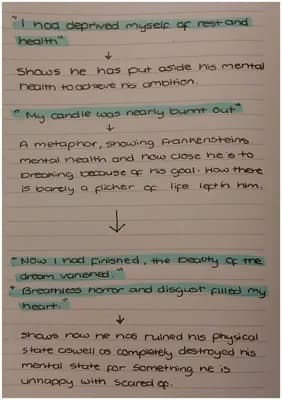 "I had deprived myself of rest and
health"
↓
Shows he has put aside his mental
health to achieve his ambition.
"My candle was nearly burnt out"
↓
A metaphor, showing Frankensteins
mental health and how close he is to
breaking because of his goal. How there
is barely a flicker of life left in him.
↓
"Now I had finished, the beauty of the
dream vanished."
"Breathless horror and disgust filled my
heart."
↓
Shows how he has ruined his physical
state aswell as completely destroyed his
mental state for something he is
unhappy with scared of.